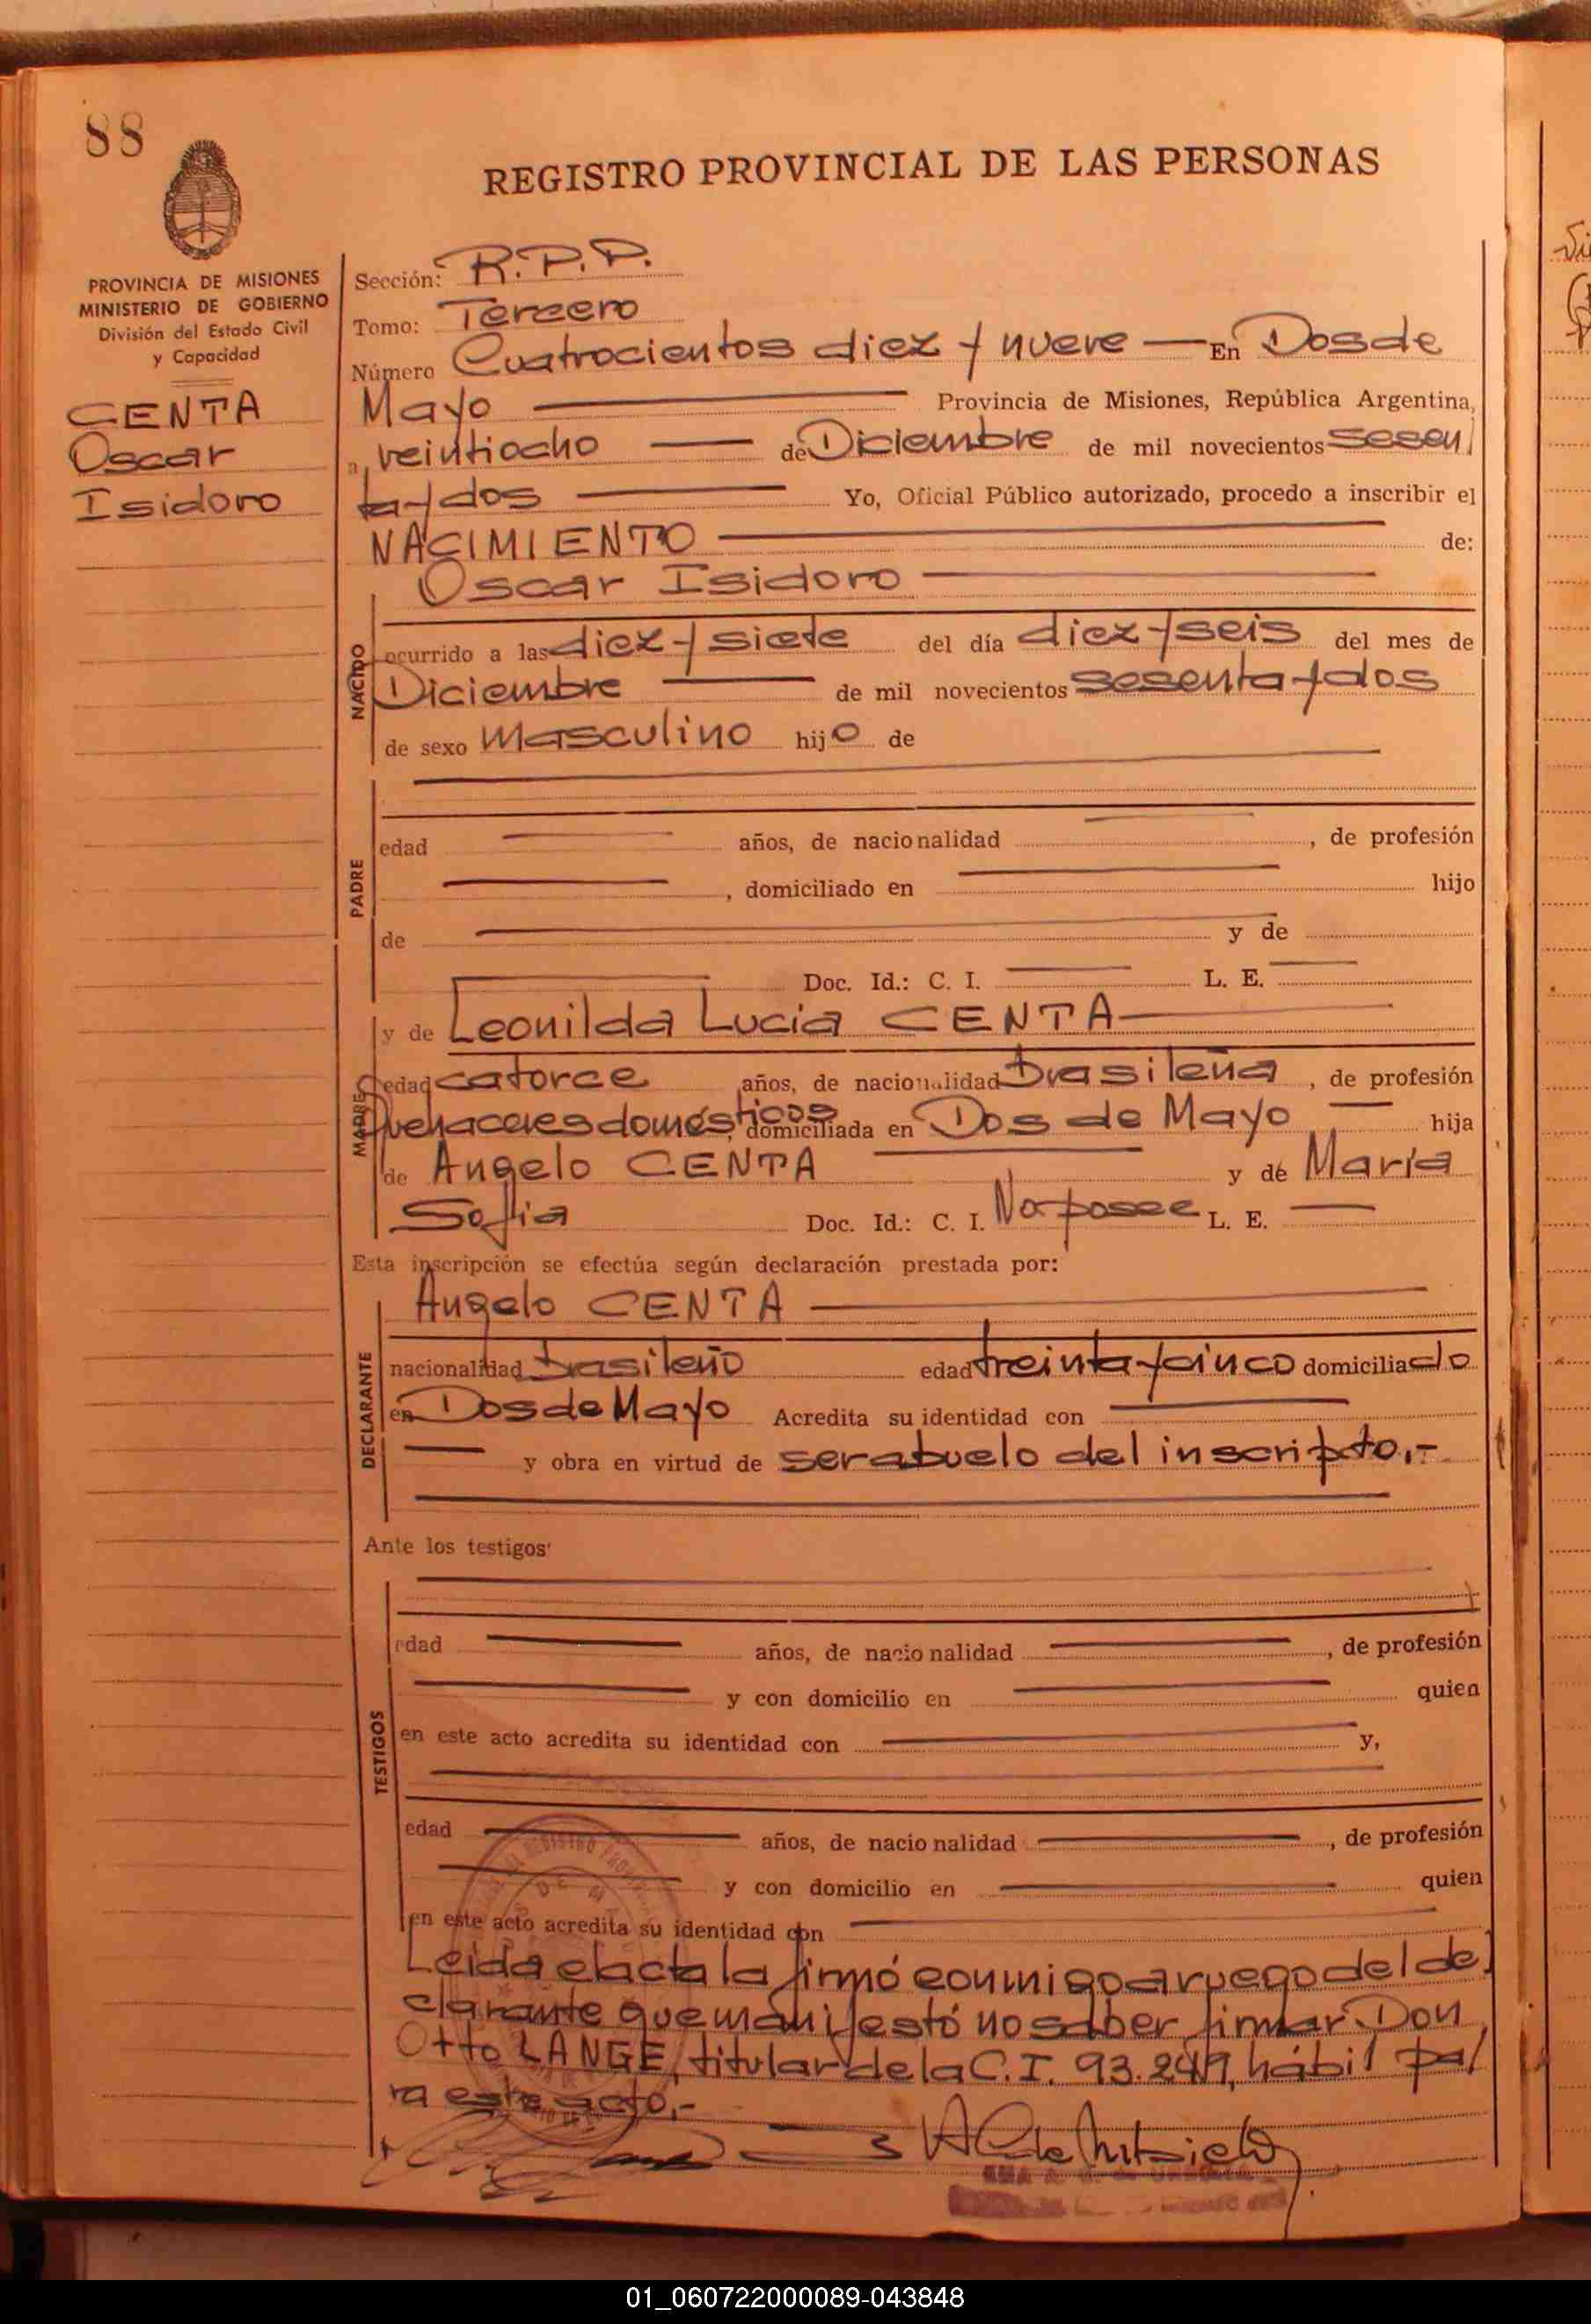 88
REGISTRO PROVINCIAL DE LAS PERSONAS
PROVINCIA DE MISIONES
MINISTERIO DE GOBIERNO
División del Estado Civil
y Capacidad
CENTA
Oscar
Isidoro
Sección: R.P.P.
Tomo: Tercero
Número Cuatrocientos diez y nueve — En Dos de
Mayo — Provincia de Misiones, República Argentina,
a veintiocho — de Diciembre de mil novecientos sesen
ta y dos — Yo, Oficial Público autorizado, procedo a inscribir el
NACIMIENTO — de:
Oscar Isidoro —
NACIDO
ocurrido a las diez y siete del día diez y seis del mes de
Diciembre — de mil novecientos sesenta y dos
de sexo Masculino hijo de
PADRE
edad — años, de nacionalidad — , de profesión
— , domiciliado en — hijo
de — y de
— Doc. Id.: C. I. — L. E. —
MADRE
y de Leonilda Lucia CENTA —
edad catorce años, de nacionalidad brasileña , de profesión
Quehaceres domésticos, domiciliada en Dos de Mayo — hija
de Angelo CENTA — y de María
Sofia Doc. Id.: C. I. No posee L. E. —
Esta inscripción se efectúa según declaración prestada por:
DECLARANTE
Angelo CENTA —
nacionalidad brasileño edad treinta y cinco domiciliado
en Dos de Mayo Acredita su identidad con —
— y obra en virtud de ser abuelo del inscripto.-
Ante los testigos
TESTIGOS
edad — años, de nacionalidad — , de profesión
— y con domicilio en — quien
en este acto acredita su identidad con — y,
edad — años, de nacionalidad — , de profesión
— y con domicilio en — quien
en este acto acredita su identidad con —
Leida el acta la firmó conmigo a ruego del de
clarante que manifestó no saber firmar Don
Otto LANGE, titular de la C.I. 93.249, hábil pa
ra este acto.-
01_060722000089-043848